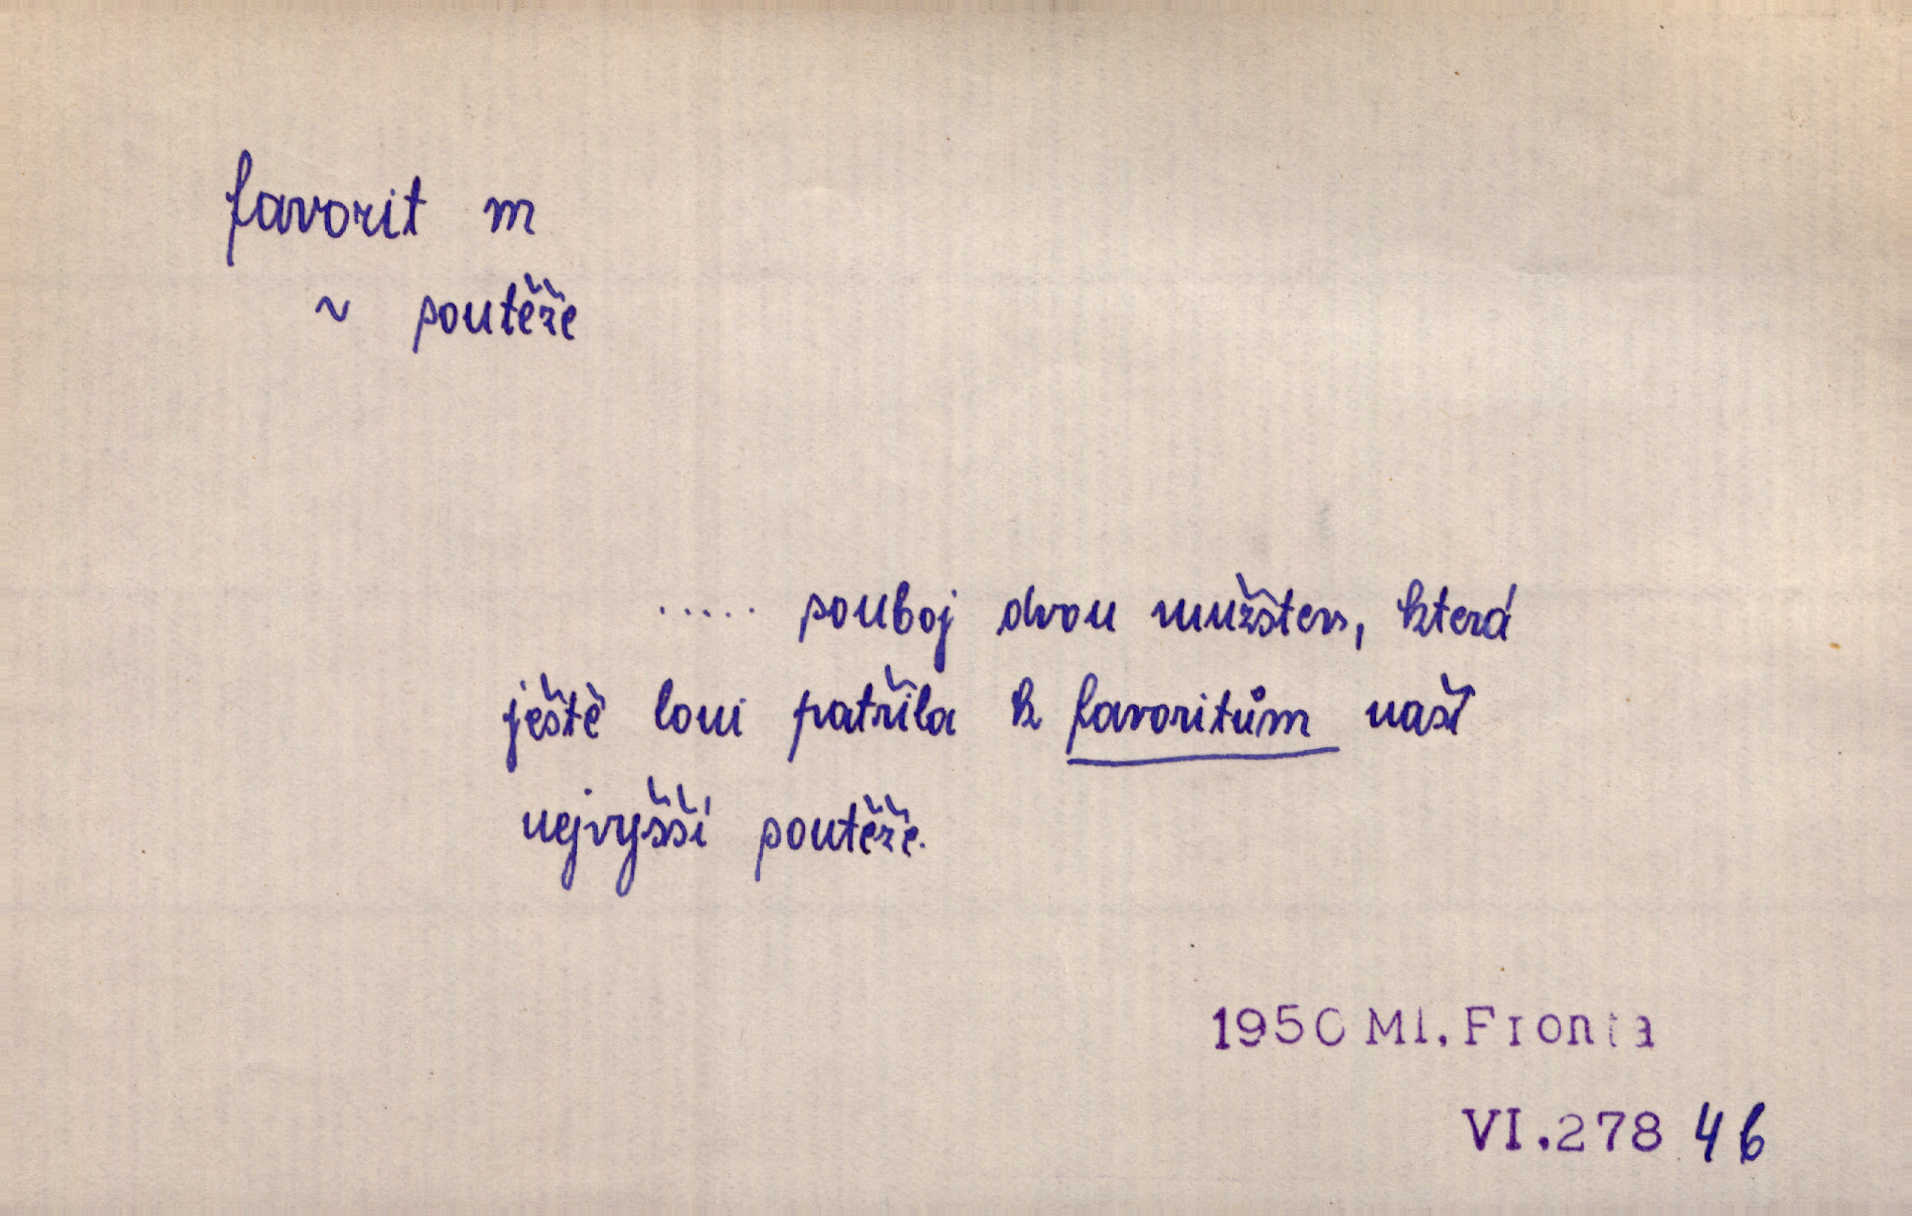 favorit m
~ soutěže
..... souboj dvou mužstev, která
ještě loni patřila k favoritům naší
nejvyšší soutěže.
1950 Ml. Fronta
VI.278 46